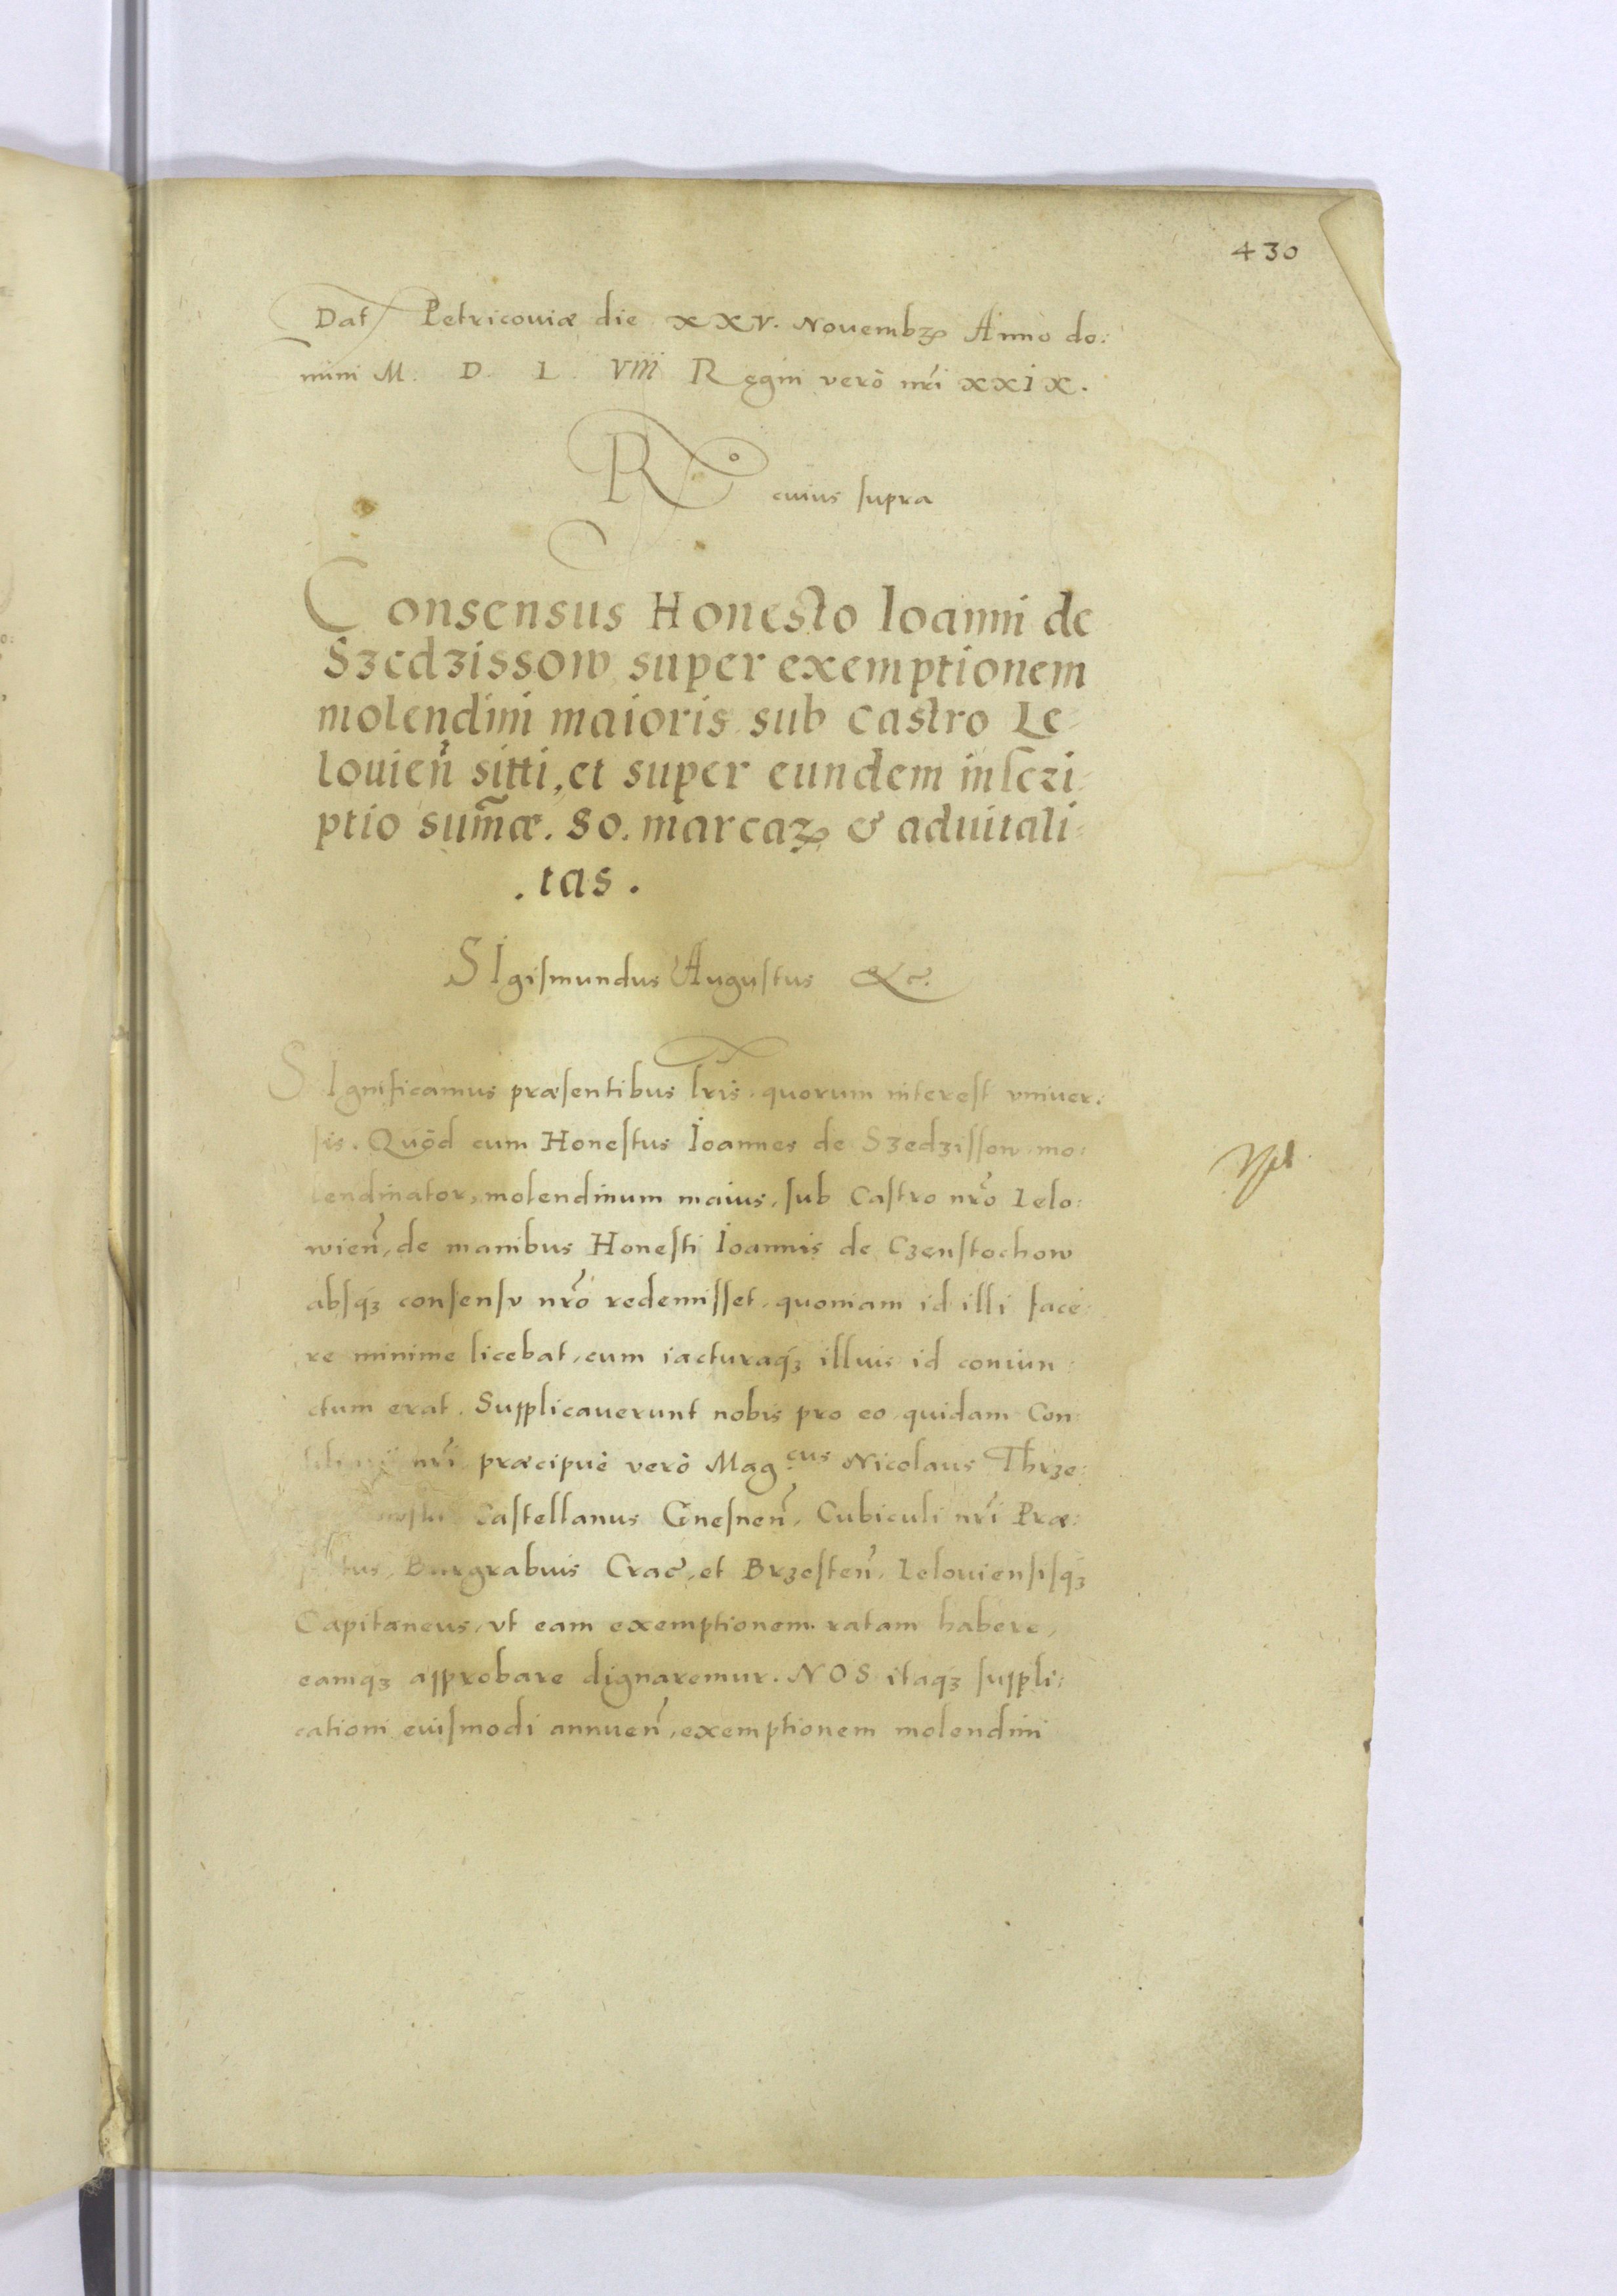 430
Dat Petricouiæ die XXV. Nouembꝝ Anno do:
mini M. D. L. VIII Regni verò nr̃i xxix.
Rº cuius supra
Consensus Honesto Ioanni de
Szedzissow super exemptionem
molendini maioris sub castro Le-
louien̄ sitti, et super eundem inscri-
ptio sum̃æ. 80. marcaꝝ & aduitali-
.tas.
SIgismundus Augustus &c.
SIgnificamus præsentibus lr̃is, quorum interest vniuer:
sis. Quòd cum Honestus Ioannes de Szedzissow mo:
lendinator, molendinum maius, sub Castro nr̃o Lelo:
wien̄, de manibus Honesti Ioannis de Czenstochow
absqꝫ consensu nr̃o redemisset, quoniam id illi face:
re minime licebat, cum iacturaqꝫ illius id coniun:
ctum erat. Supplicauerunt nobis pro eo quidam Con:
nr̃i præcipuè verò Mag.cus Nicolaus Thrze:
Castellanus Gnesnen̄, Cubiculi nr̃i Præ:
Burgrabius Crac̄, et Brzesten̄, Lelouiensisqꝫ
Capitaneus, vt eam exemptionem ratam habere,
eamqꝫ approbare dignaremur. NOS itaqꝫ suppli:
cationi euismodi annuen̄, exemptionem molendini